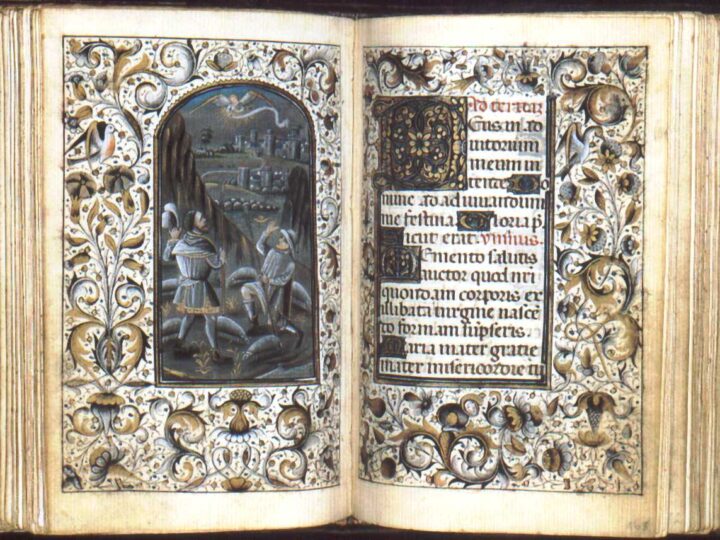 Ad tertiaz
Eus in ad
iutorium
meum in
tende Do
mine ad adiuuandum
me festina Gloria p
Sicut erat. ymnus
Memento salutis
auctor quod nri
quondam corporis ex
illibata uirgine nascē
do formam sūpseris.
Maria mater gratie
mater misericordie tu